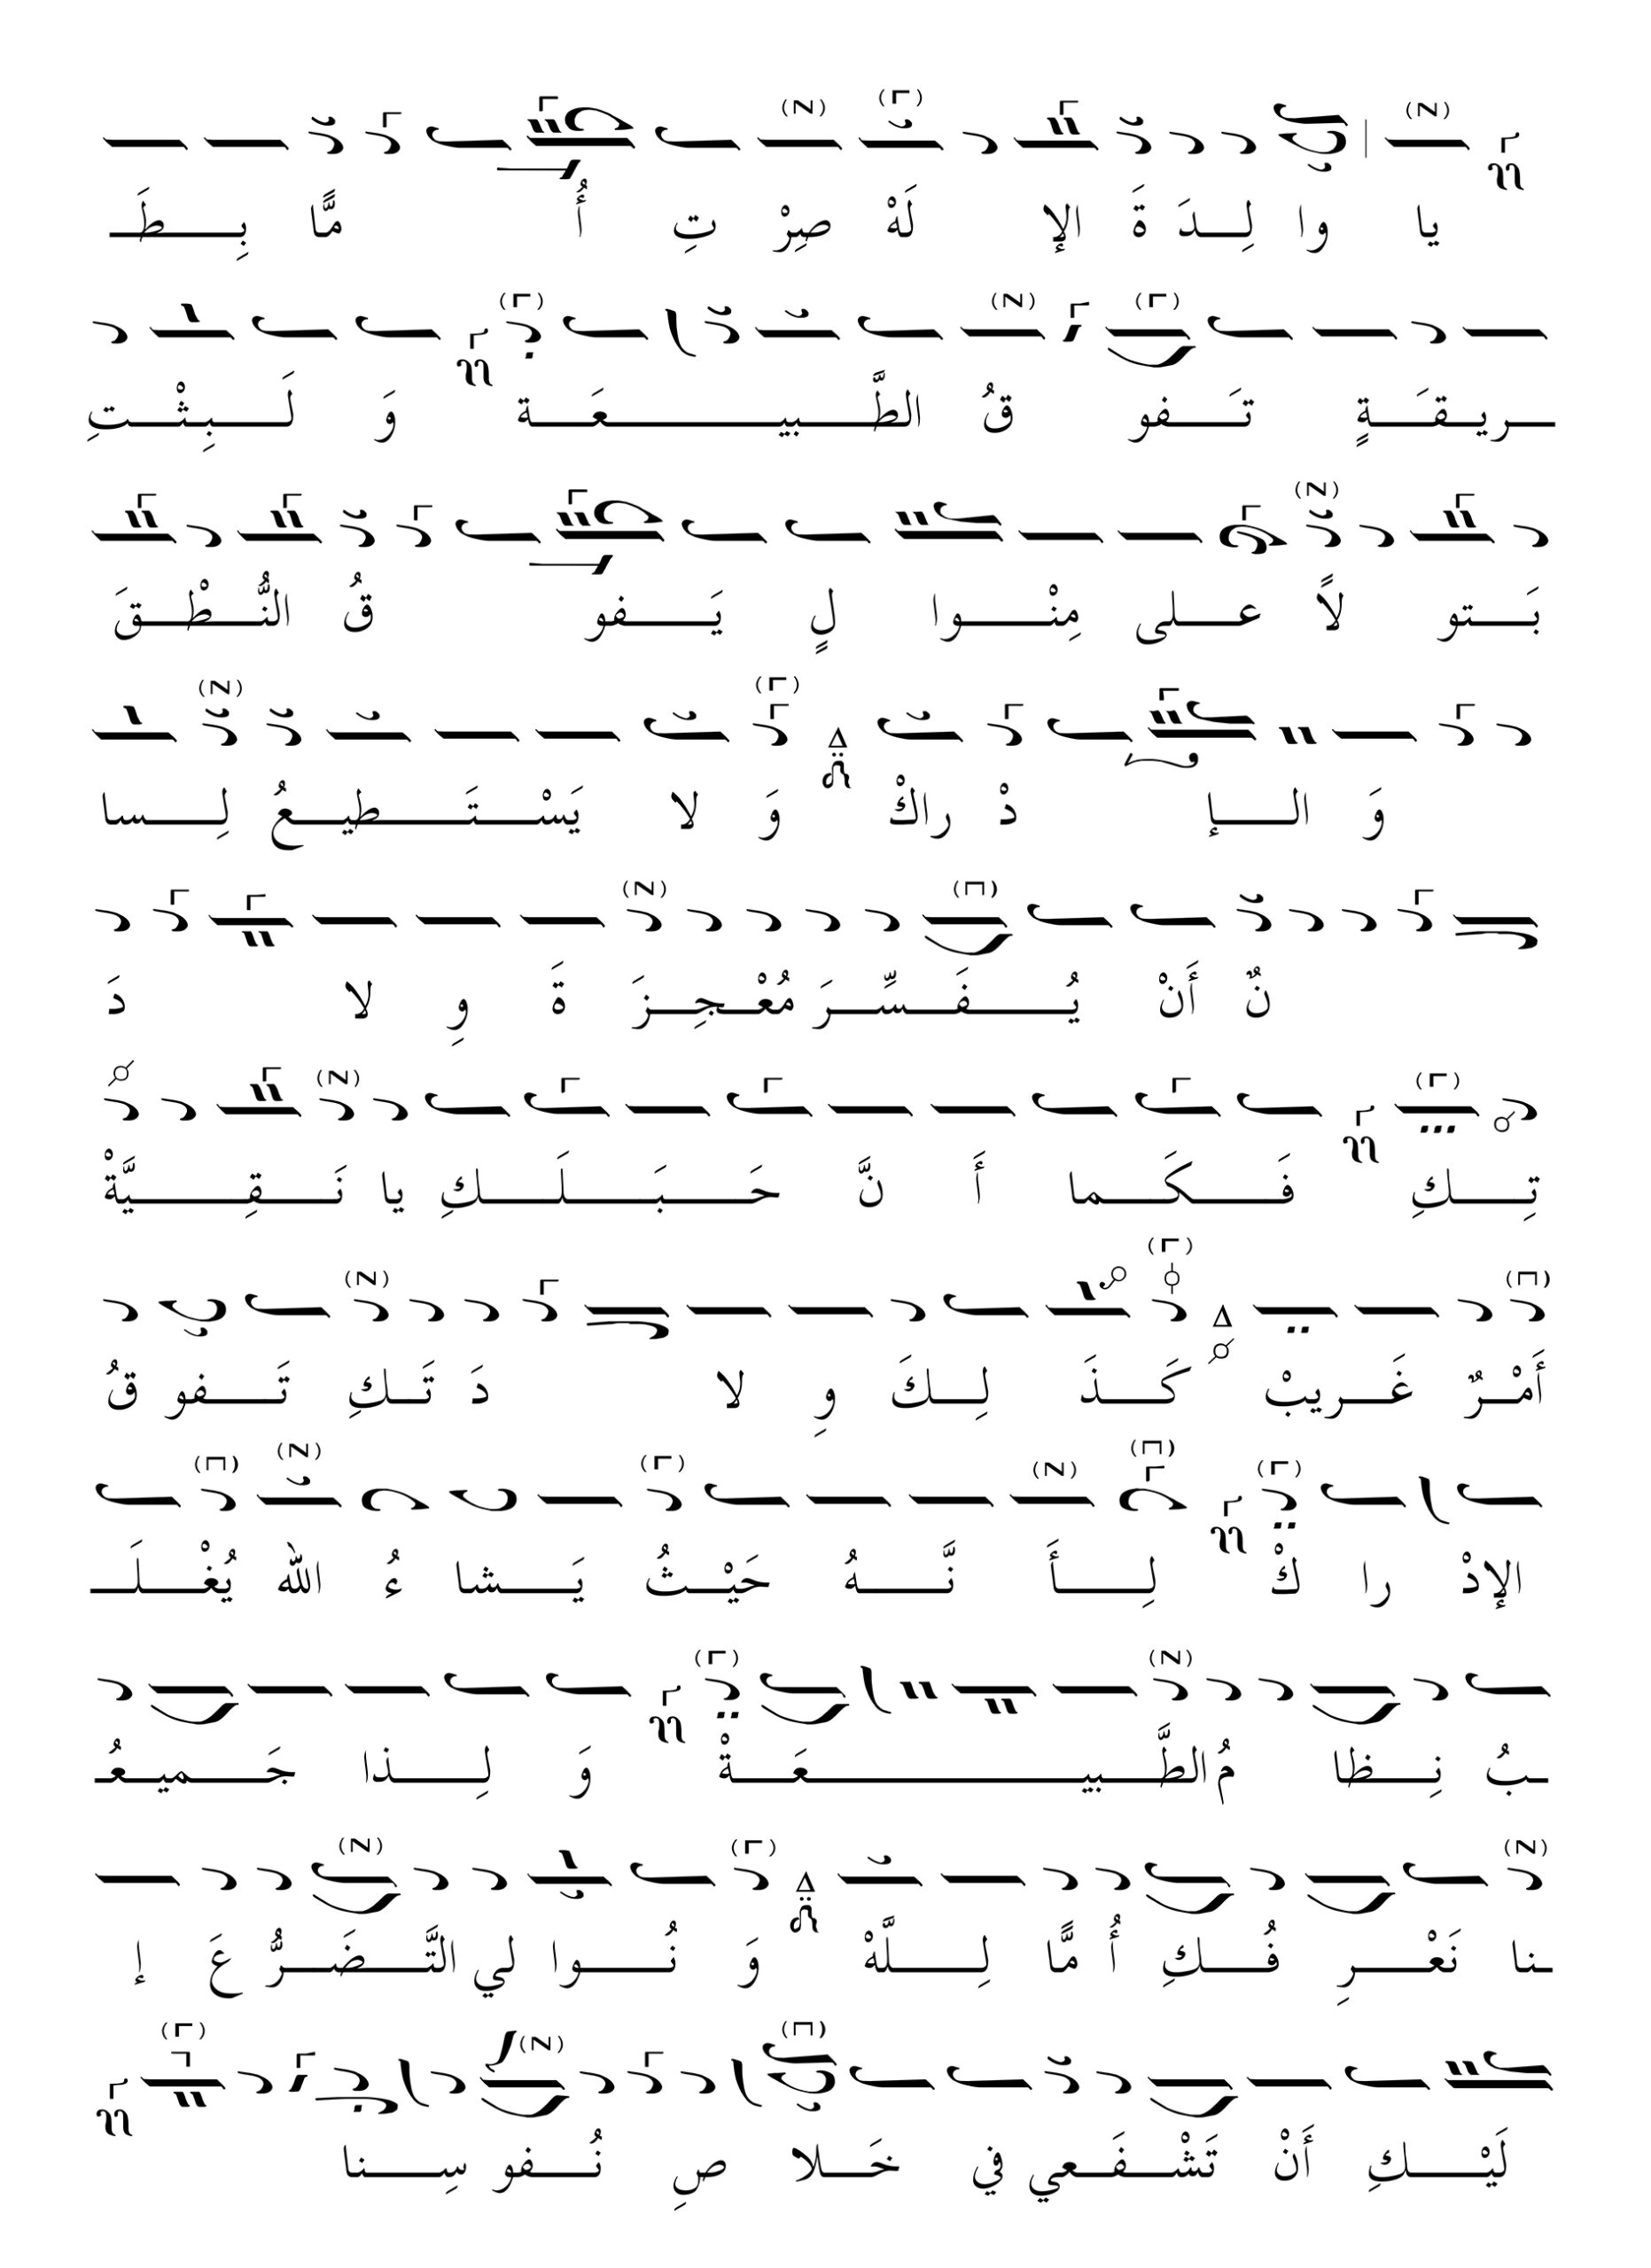 يا وا لِـدَ ةَ الإ لَهْ صِرْ تِ أُ مًّا بِـطَـ
ـريـقـةٍ تَـفو قُ الطَّـبيـعَـة وَ لَـبِـثْـتِ
بَـتو لاً عـلى مِنْـوا لٍ يَـفو قُ النُّـطْـقَ
وَ الـإ دْ راكْ وَ لا يَسْـتَـطيـعُ لِـسا
نٌ أَنْ يُـفَـسِّـرَ مُعْـجِـزَ ةَ وِ لا دَ
تِـكِ فَـكَـما أَ نَّ حَـبَـلَـكِ يا نَـقِـيَّةْ
أَمْـرٌ غَـريبْ كَـذَ لِـكَ وِ لا دَ تَـكِ تَـفو قُ
الإدْ را كْ لِـأَ نَّـهُ حَيْـثُ يَـشا ءُ الله يُغْـلَـ
ـبُ نِـظا مُ الطَّـبيـعَـةْ وَ لِـذا جَـميـعُ
ـنا نَعْـرِ فُـكِ أُ مًّا لِـلَّهْ وَ نُـوا لي التَّـضَـرُّ عَ إ
لَيْـكِ أَنْ تَشْـفَـعي في خَـلا صِ نُـفو سِـنا